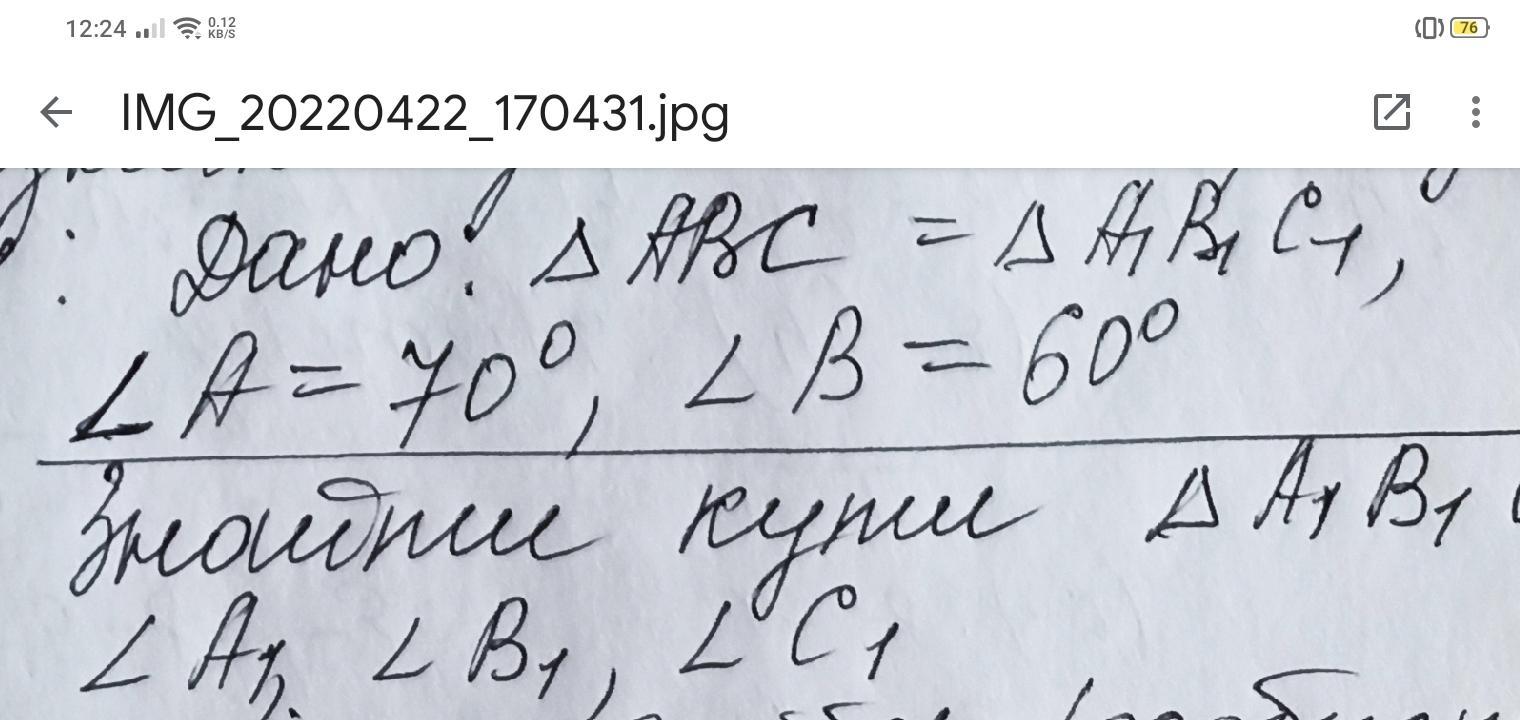 12:24 0.12 KB/S 76
IMG_20220422_170431.jpg
: Дано: Δ ABC = Δ A₁B₁C₁,
∠A = 70⁰, ∠B = 60⁰
Знайти кути Δ A₁B₁
∠A₁, ∠B₁, ∠C₁